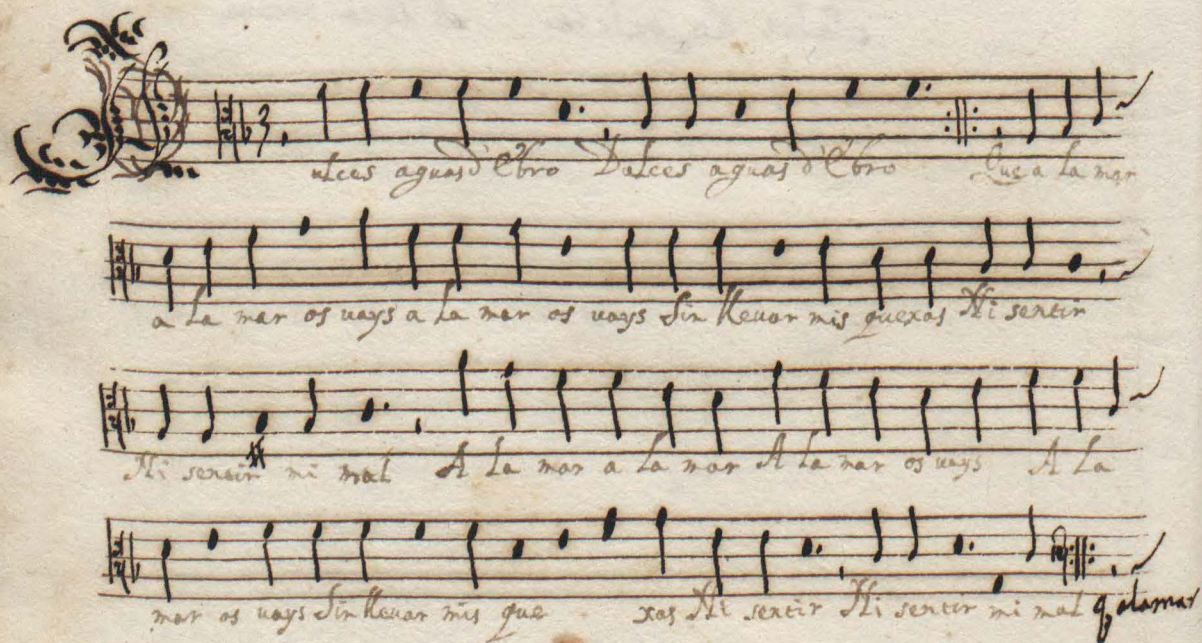 Dulces aguas d'Ebro Dulces aguas d'Ebro Que a la mar
a la mar os vays a la mar os vays Sin llevar mis quexas Ni sentir
Ni sentir mi mal A la mar a la mar A la mar os vays A la
mar os vays Sin llevar mis que xas Ni sentir Ni sentir mi mal q alamar